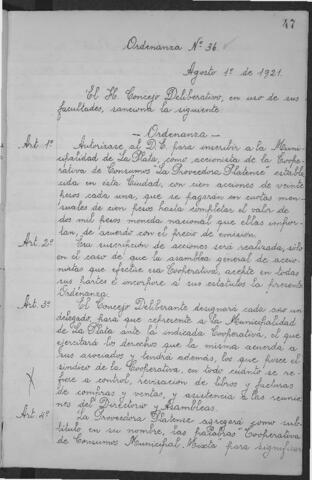 47
Ordenanza Nº 36
Agosto 1º de 1921.
El H. Concejo Deliberativo, en uso de sus
facultades, sanciona la siguiente
— Ordenanza —
Art. 1º Autorízase al D.E. para inscribir a la Muni-
cipalidad de La Plata, como accionista de la Coope-
rativa de Consumos "La Proveedora Platense" estable-
cida en esta Ciudad, con cien acciones de veinte
pesos cada una, que se pagarán en cuotas men-
suales de cien pesos hasta completar el valor de
dos mil pesos moneda nacional que ellas impor-
tan, de acuerdo con el precio de emisión.
Art. 2º Esa suscrición de acciones será realizada, sólo
en el caso de que la asamblea general de accio-
nistas que efectúe esa Cooperativa, acepte en todas
sus partes e incorpore a sus estatutos la presente
Ordenanza.
Art. 3º El Concejo Deliberante designará cada año un
delegado, para que represente a la Municipalidad
de La Plata ante la indicada Cooperativa, el que
ejercitará los derechos que la misma acuerda a
sus asociados y tendrá además, los que posee el
síndico de la Cooperativa, en todo cuánto se re-
fiere a control, revisación de libros y facturas
de compras y ventas, y asistencia a las reunio-
nes del Directorio y Asambleas.
Art. 4º La Proveedora Platense agregará como sub-
título en su nombre, las palabras "Cooperativa
de Consumos Municipal Mixta" para significar